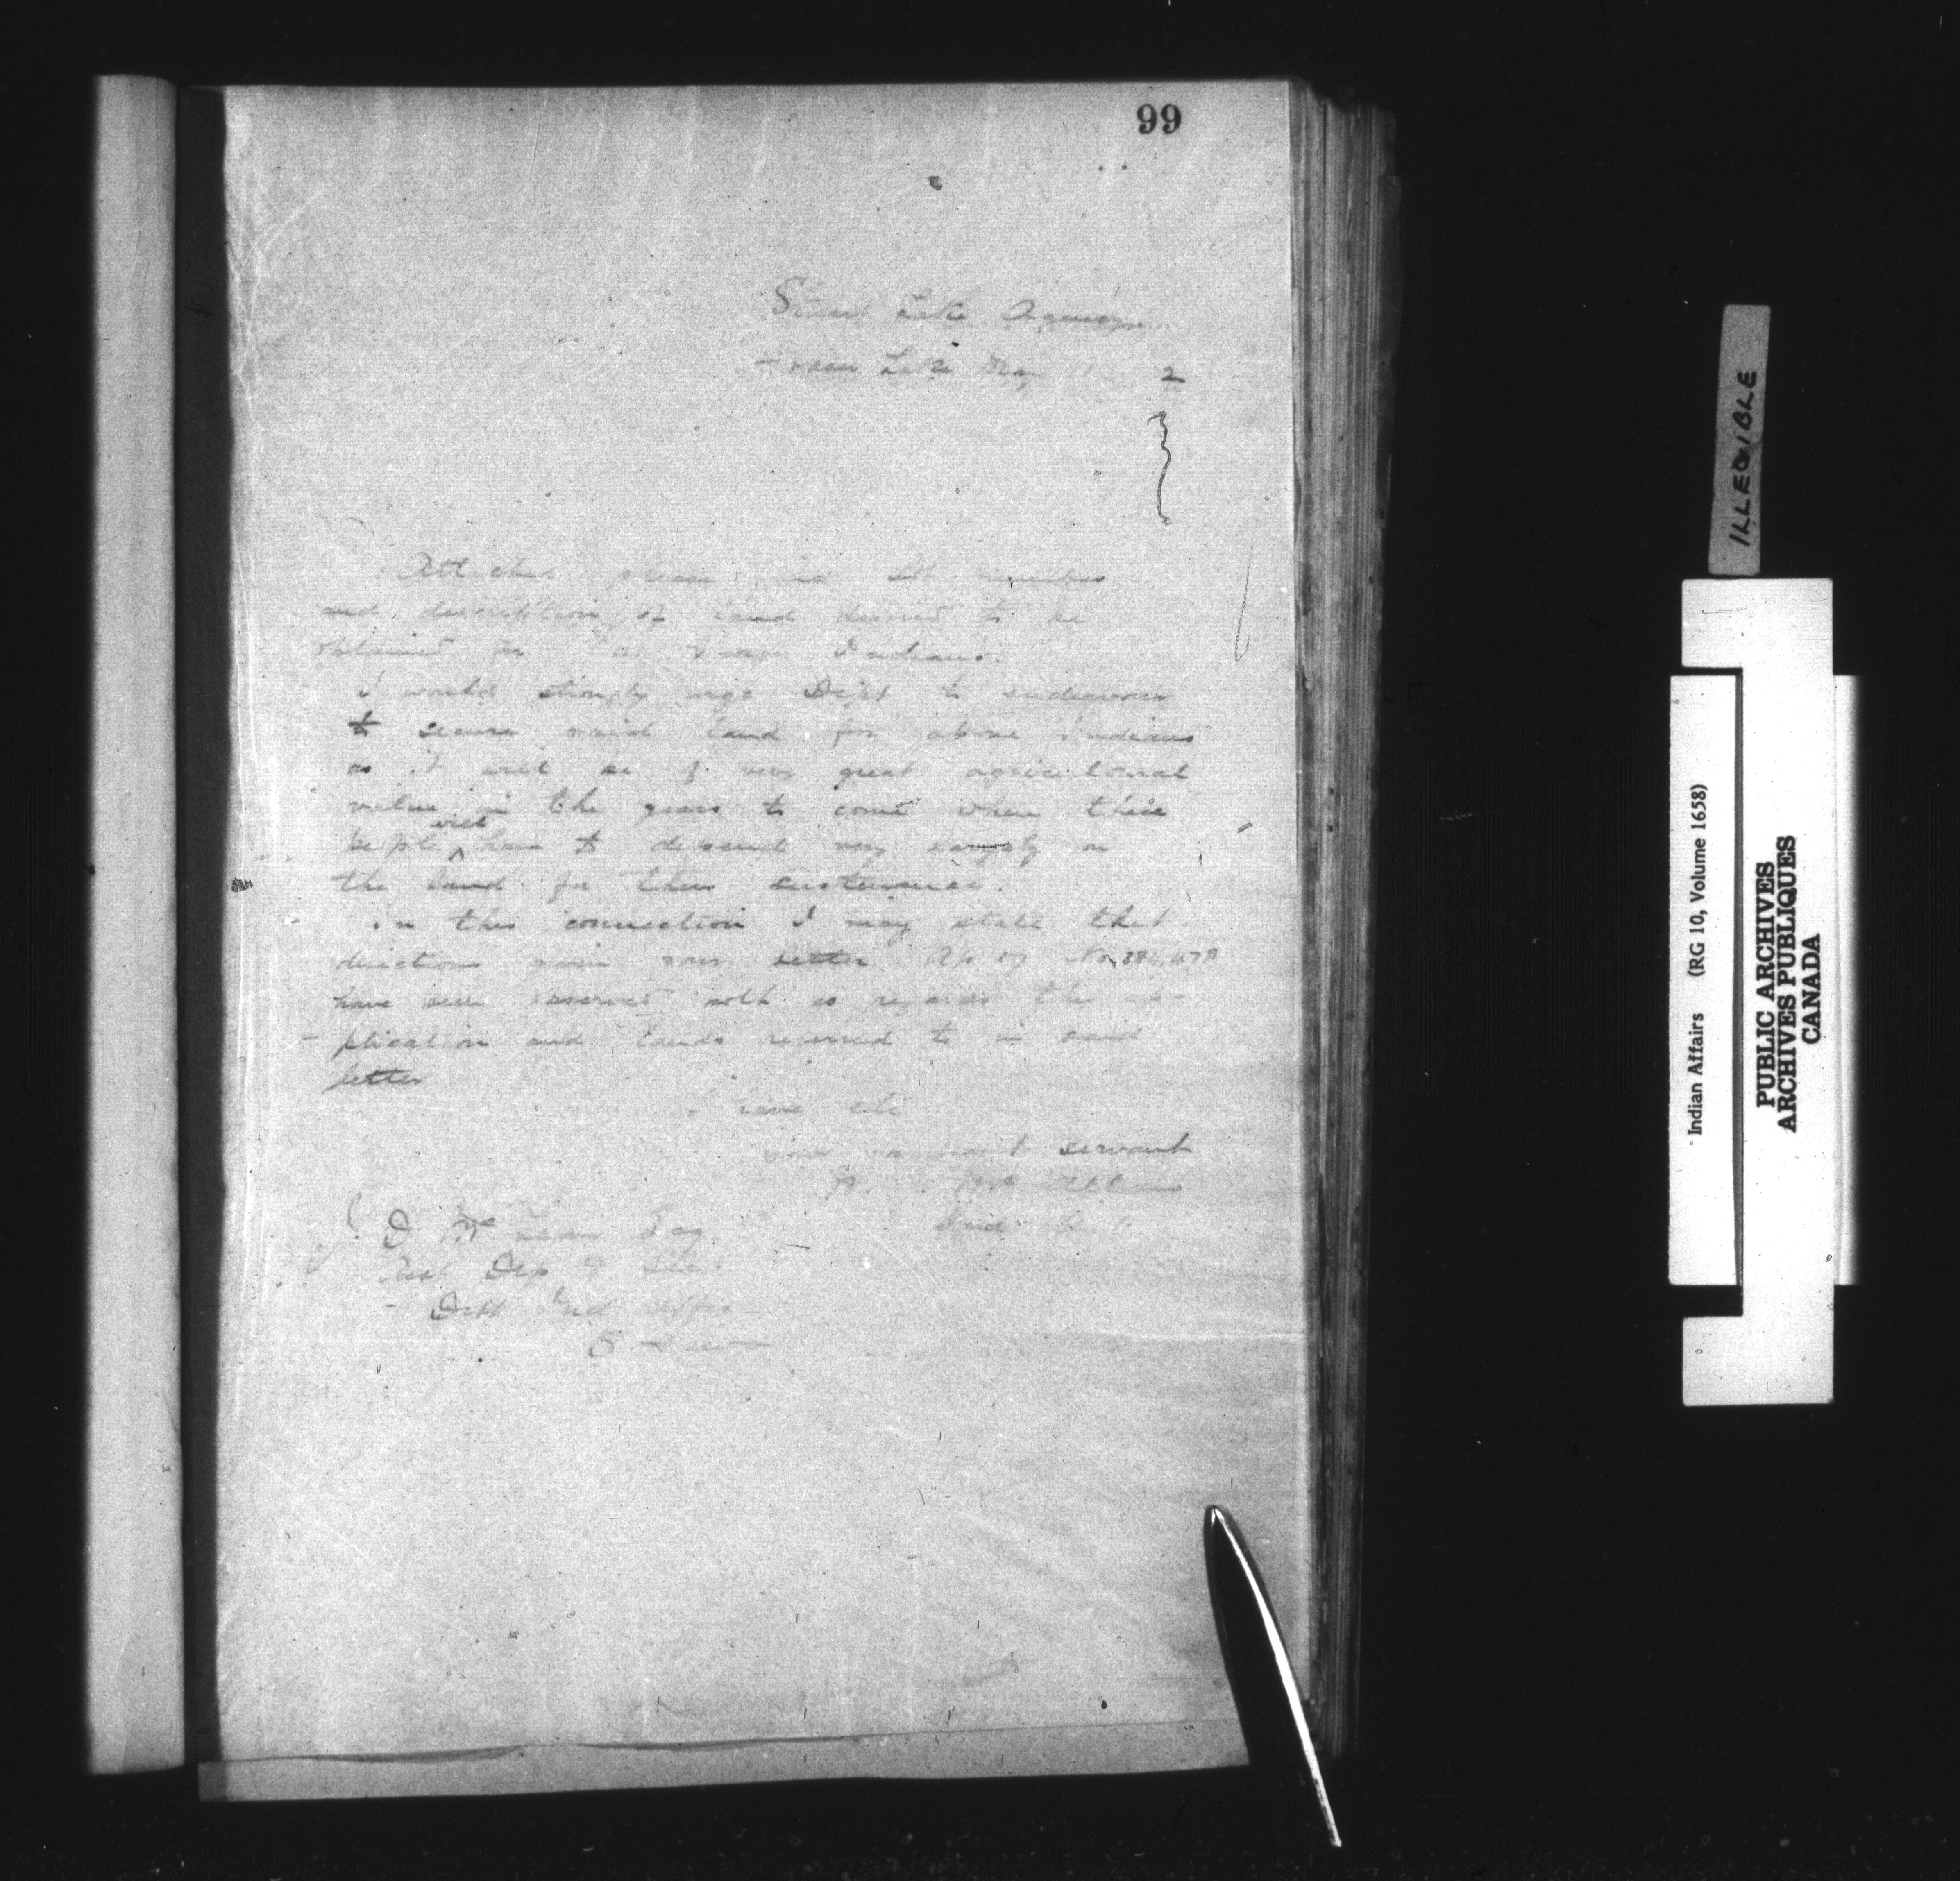 99
Stuart Lake Agency
Lake May 11 2
Attached please find lot numbers
and description of land desired to be
obtained for Indians.
I would strongly urge Dept to endeavour
to secure said land for above Indians
as it will be of very great agricultural
value in the years to come when these
people will have to depend very largely on
the land for their sustenance.
In this connection I may state that
directions your letter Ap 17 No
have been observed both as regards the ap-
plication and lands referred to in said
letter
I have etc
your servant
J. D McLean Esq
Asst Dep & Sec.
Dept Ind Affrs
Ottawa
ILLEGIBLE
Indian Affairs (RG 10, Volume 1658)
PUBLIC ARCHIVES
ARCHIVES PUBLIQUES
CANADA